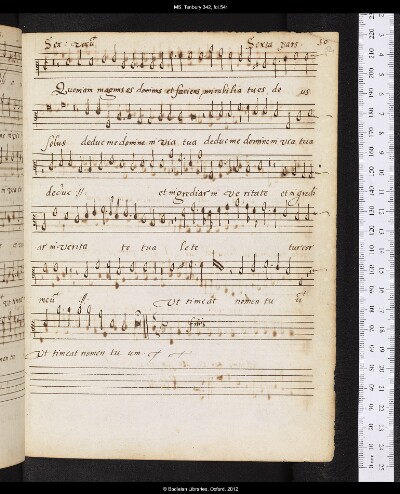 MS. Tenbury 342, fol.54r
Sex: vocū Sexta pars. 50
Quoniam magnus es domine et faciens mirabilia tu es de us
solus deduc me domine in via tua deduc me domine in via tua
deduc :||: et ingrediar in ve ritate et ingredi
ar in verita te tua lete tur cor
meū :||: Ut timeat nomen tu ū
finis
Ut timeat nomen tu um
© Bodleian Libraries, Oxford, 2012